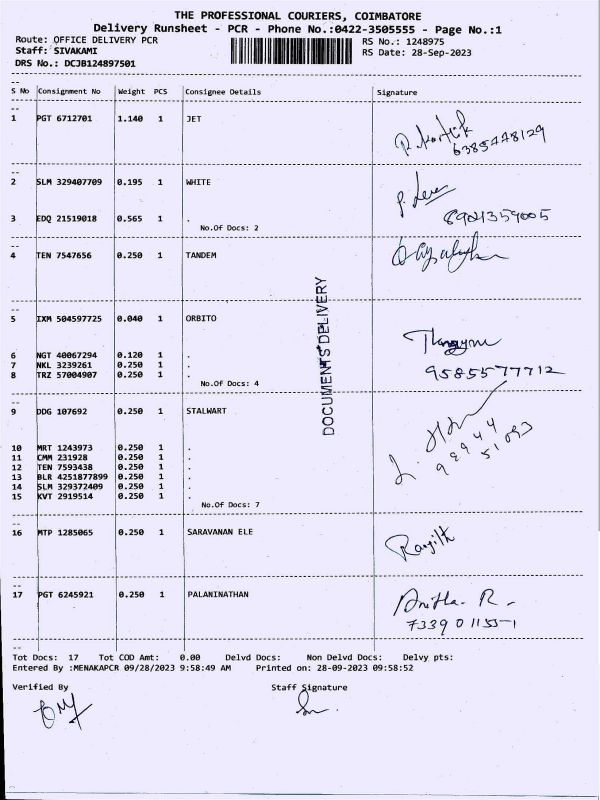 THE PROFESSIONAL COURIERS, COIMBATORE
Delivery Runsheet - PCR - Phone No.:0422-3505555 - Page No.:1
Route: OFFICE DELIVERY PCR RS No.: 1248975
Staff: SIVAKAMI RS Date: 28-Sep-2023
DRS No.: DCJB124897501
S No Consignment No Weight PCS Consignee Details Signature
1 PGT 6712701 1.140 1 JET
2 SLM 329407709 0.195 1 WHITE
3 EDQ 21519018 0.565 1 .
No.Of Docs: 2
8921359005
4 TEN 7547656 0.250 1 TANDEM
DOCUMENTS DELIVERY
5 IXM 504597725 0.040 1 ORBITO
6 NGT 40067294 0.120 1 .
7 NKL 3239261 0.250 1 .
8 TRZ 57004907 0.250 1 .
No.Of Docs: 4
9585577712
9 DDG 107692 0.250 1 STALWART
10 MRT 1243973 0.250 1 .
11 CMM 231928 0.250 1 .
12 TEN 7593438 0.250 1 .
13 BLR 4251877899 0.250 1 .
14 SLM 329372409 0.250 1 .
15 KVT 2919514 0.250 1 .
No.Of Docs: 7
98944
51093
16 MTP 1285065 0.250 1 SARAVANAN ELE
Ranjith
17 PGT 6245921 0.250 1 PALANINATHAN
Anitha. R.
Tot Docs: 17 Tot COD Amt: 0.00 Delvd Docs: Non Delvd Docs: Delvy pts:
Entered By :MENAKAPCR 09/28/2023 9:58:49 AM Printed on: 28-09-2023 09:58:52
Verified By Staff Signature